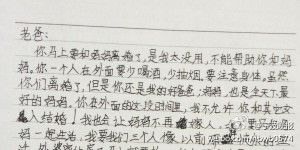 老爸：
你马上要和妈妈离婚了，是我太没用，不能帮助你和妈
妈。你一个人在外面要少喝酒，少抽烟，要注意身体。虽然
你们离婚了，但是你还是我的好爸爸，妈妈，也是全天下最
好的妈妈。你在外面的这段时间里，我不允许你和其它女
人结婚！我也会让妈妈不再嫁人，
妈一起生活，我要我们三个人像以前